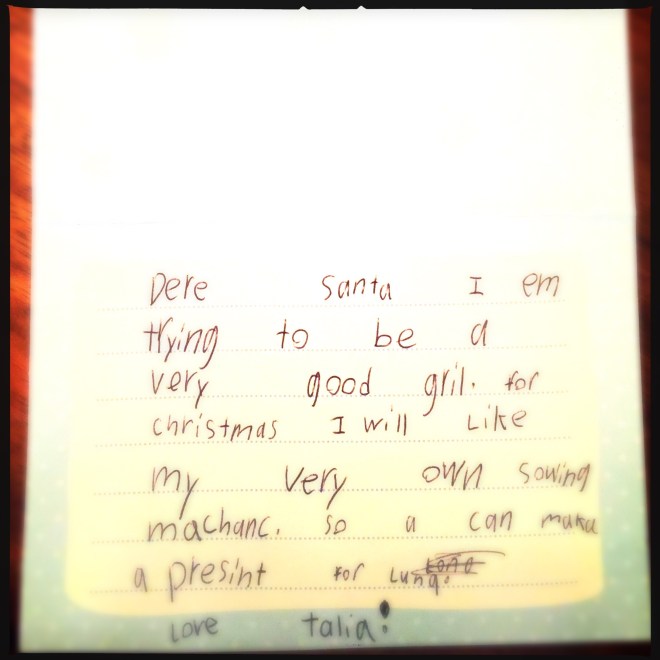 Dere Santa I em
trying to be a
very good gril. for
christmas I will Like
my very own sowing
machanc. so a can maka
a presint for Luna.
Love talia!